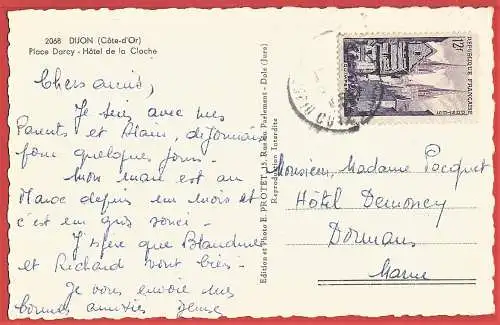 2068 DIJON (Côte-d'Or)
Place Darcy - Hôtel de la Cloche
Chers amis,
Je suis avec mes
Parents et Alain, à Dijon
pour quelques jours.
Mon mari est au
Maroc depuis un mois et
c'est un gros souci.
J'espère que Blandine
et Richard vont bien.
Je vous envoie mes
bonnes amitiés Denise
Edition et Photo B. PROTET, 53, Rue du Parlement - Dole (Jura)
Reproduction Interdite
12F
REPUBLIQUE FRANÇAISE
POSTES
Monsieur, Madame Pacquet
Hôtel Demoncy
Dormans
Marne